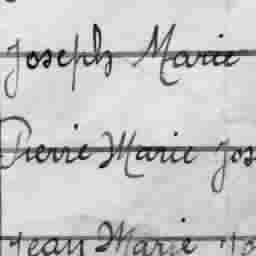 Joseph Marie
Pierre Marie Jos
Jean Marie Jo